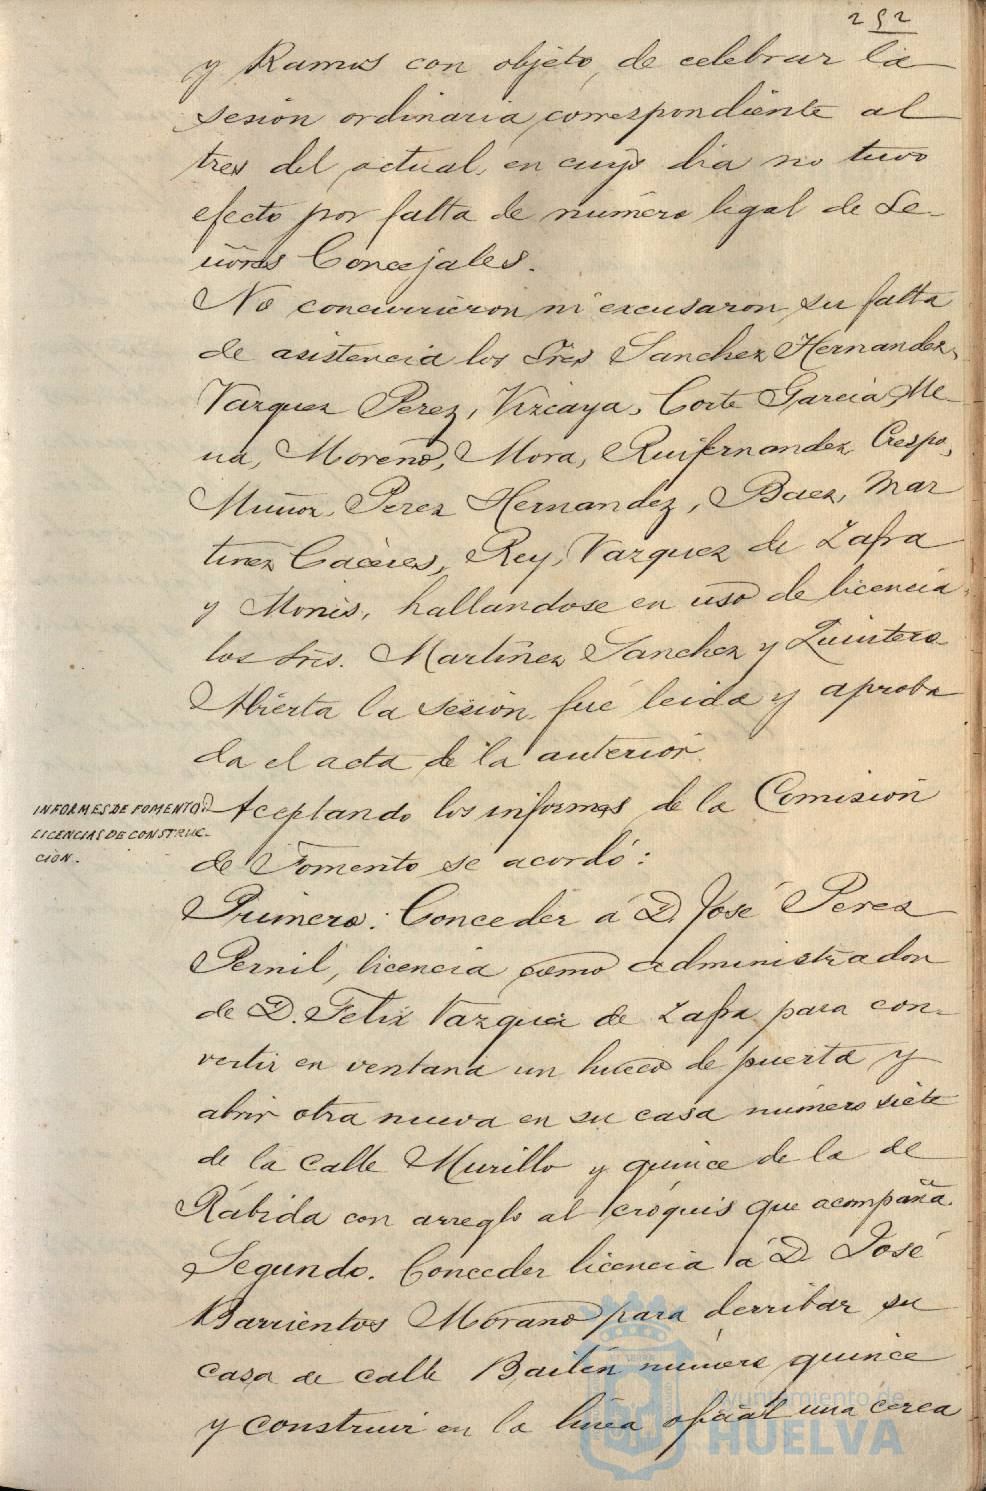 252
y Ramos con objeto de celebrar la
sesion ordinaria correspondiente al
tres del actual, en cuyo dia no tuvo
efecto por falta de número legal de Se-
ñores Concejales.
No concurrieron ni excusaron su falta
de asistencia los Sres Sanchez Hernandez,
Vazquez Perez, Vizcaya, Corte Garcia, Me-
na, Moreno, Mora, Ruifernandez Crespo,
Muñoz, Perez Hernandez, Baez, Mar
tinez Cáceres, Rey, Vazquez de Zafra
y Monis, hallandose en uso de licencia
los Sres. Martinez Sanchez y Quintero
Abierta la sesion fué leida y aproba
da el acta de la anterior.
INFORMES DE FOMENTO
LICENCIAS DE CONSTRUC-
CION.
Aceptando los informes de la Comision
de Fomento se acordó:
Primero: Conceder á D. José Perez
Pernil, licencia como administrador
de D. Felix Vazquez de Zafra para con-
vertir en ventana un hueco de puerta y
abrir otra nueva en su casa número siete
de la calle Murillo y quince de la de
Rábida con arreglo al cróquis que acompaña.
Segundo. Conceder licencia á D. José
Barrientos Morano para derribar su
casa de calle Bailén número quince
y construir en la línea oficial una cerca
Ayuntamiento de
HUELVA